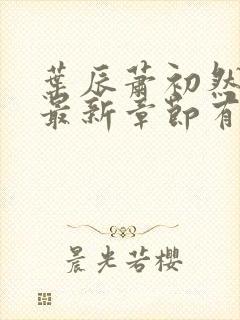 葉辰蕭初然
最新章節有
晨光若櫻